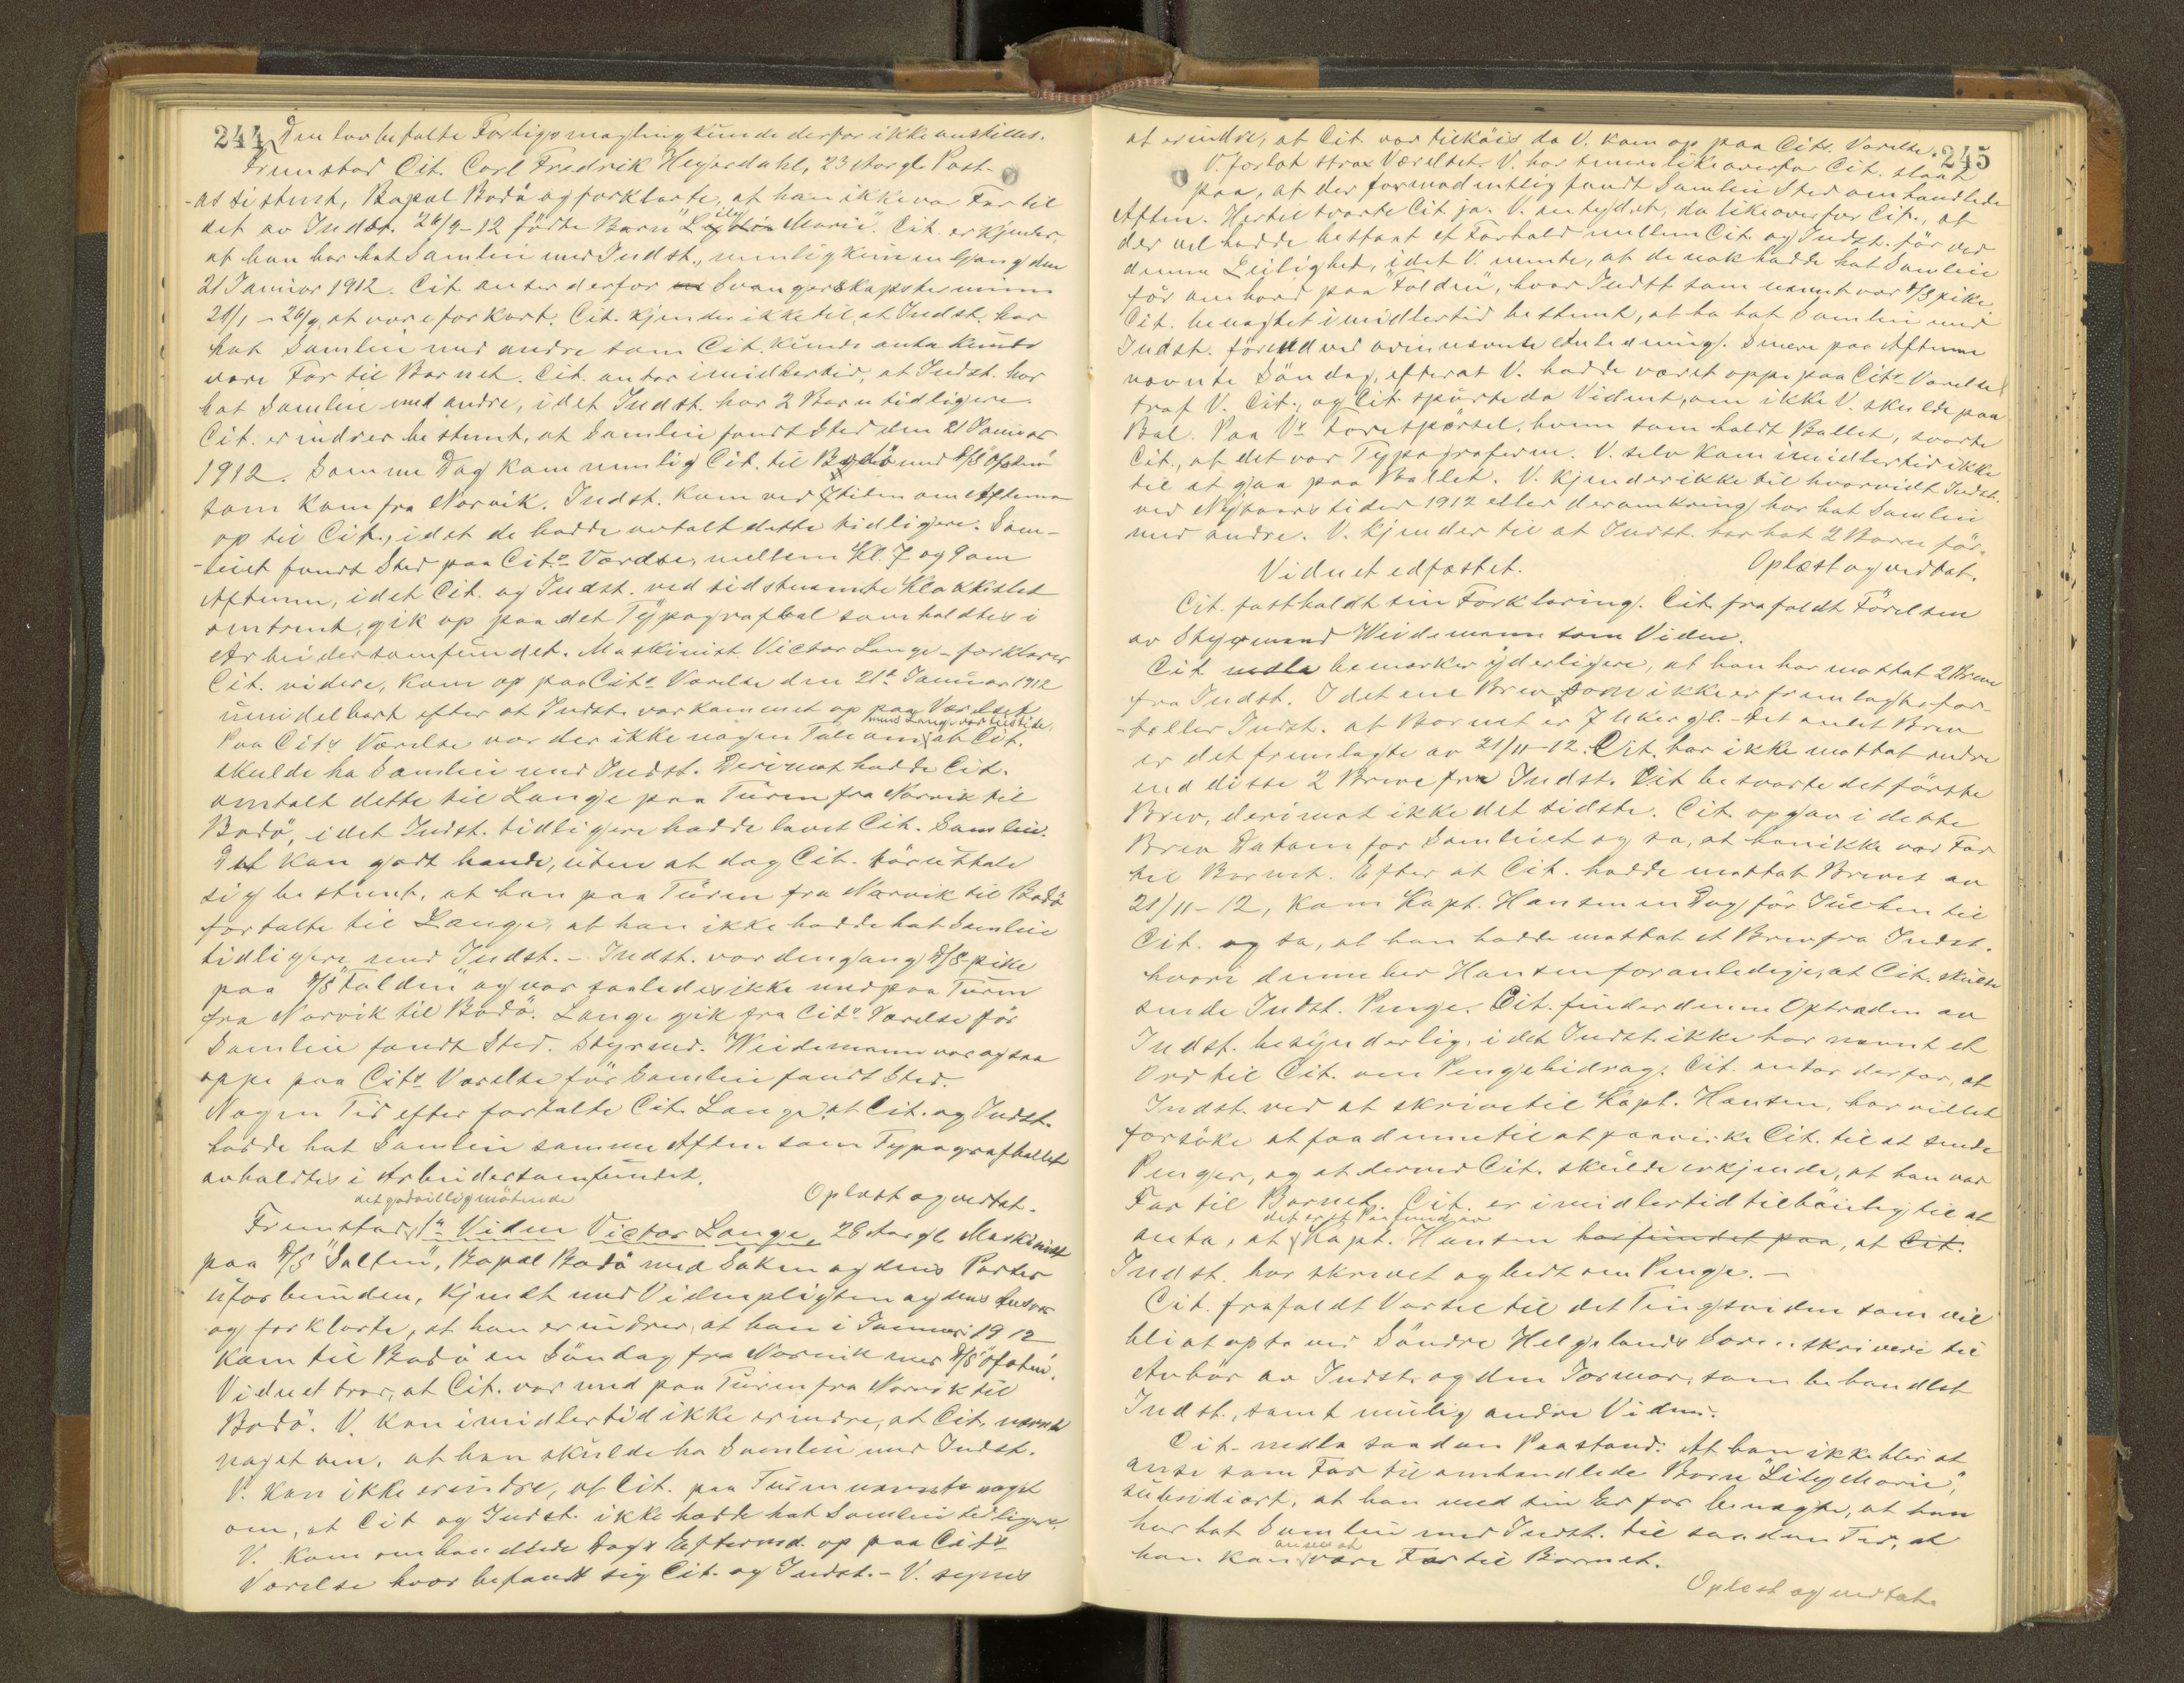 244
Den lovbefalte Forligsmægling kunde derfor ikke anstilles.
Fremstod Cit. Carl Fredrik Heyerdahl, 23 Aar gl. Post-
-assistent, Bopæl Bodö og forklarte, at han ikke var Far til
det av Indst. 26/9-12 födte Barn "Lily Marie". Cit. erkjender,
at han har hat Samleie med Indst., nemlig kun en Gang den
21 Januar 1912. Cit. anser derfor Svangerskapsterminen
21/1 - 26/9 at være for kort. Cit. kjender ikke til, at Indst. har
hat Samleie med andre som Cit. kunde anta kunde
være Far til Barnet. Cit. antar imidlertid, at Indst. har
hat Samleie med andre, idet Indst. har 2 Barn tidligere.
Cit. erindrer bestemt, at Samleie fandt Sted den 21 Januar
1912. Samme Dag kom nemlig Cit. til Bodö med D/S Ofoten
som kom fra Narvik. Indst. kom ved 7 tiden om Aftenen
op til Cit., idet de hadde avtalt dette tidligere. Sam-
-leiet fandt Sted paa Cits Værelse, mellem Kl. 7 og 9 om
Aftenen, idet Cit. og Indst. ved sidstnævnte Klokkeslet
omtrent, gik op paa det Typografbal som holdtes i
Arbeidersamfundet. Maskinist Victor Lange - forklarer
Cit. videre, kom op paa Cits Værelse den 21de Januar 1912
umidelbart efter at Indst. var kommet op paa Værelset
Paa Cits Værelse var der ikke nogen Tale om, mens Lange var tilstede, at Cit.
skulde ha Samleie med Indst. Derimot hadde Cit.
omtalt dette til Lange paa Turen fra Narvik til
Bodö, idet Indst. tidligere hadde lovet Cit. Samleie.
Det kan godt hende, uten at dog Cit. tör uttale
sig bestemt, at han paa Turen fra Narvik til Bodö
fortalte til Lange, at han ikke hadde hat Samleie
tidligere med Indst. - Indst. var dengang D/S pike
paa D/S "Folden" og var saaledes ikke med paa Turen
fra Narvik til Bodö. Lange gik fra Cits Værelse för
Samleie fandt Sted. Styrmd. Weidemann var ogsaa
oppe paa Cits Værelse för Samleie fandt Sted.
Nogen Tid efter fortalte Cit. Lange, at Cit. og Indst.
hadde hat Samleie samme Aften som Typografballet
avholdtes i Arbeidersamfundet.
Oplæst og vedtat.
Fremstod det godvillig mötende 1ste Vidne Victor Lange, 28 Aar gl. Maskinist
paa D/S "Salten", Bopæl Bodö med Saken og dens Parter
uforbunden, kjendt med Vidnepligten og dens Ansvar
og forklarte, at han erindrer, at han i Januar 1912
kom til Bodö en Söndag fra Narvik med D/S "Ofoten".
Vidnet tror, at Cit. var med paa Turen fra Narvik til
Bodö. V. kan imidlertid ikke erindre, at Cit. nævnte
noget om, at han skulde ha Samleie med Indst.
V. kan ikke erindre, at Cit. paa Turen nævnte noget
om, at Cit og Indst. ikke hadde hat Samleie tidligere.
V. kom omhandlede Dags Eftermd. op paa Cits
Værelse hvor befandt sig Cit. og Indst. - V. synes
245
at erindre, at Cit. var tilköis da V. kom op paa Cits. Værelse.
V. forlot strax Værelset. V. har senere likeoverfor Cit. slaat
paa, at der formodentlig fandt Samleie Sted omhandlede
Aften. Hertil svarte Cit. ja. V. antydet, da likeoverfor Cit., at
der vel hadde bestaat et Forhold mellem Cit. og Indst. för ved
denne Leilighed, idet V. mente, at de nok hadde hat Samleie
för ombord paa "Folden", hvor Indst som nævnt var D/S pike
Cit. benægtet imidlertid bestemt, at ha hat Samleie med
Indst. förend ved ovennævnte Anledning. Senere paa Aftenen
nævnte Söndag, efterat V. hadde været oppe paa Cits Værelse
traf V. Cit., og Cit. spurte da Vidnet, om ikke V. skulde paa
Bal. Paa Vs Forespörsel, hvem som holdt Ballet, svarte
Cit., at det var Typograferne. V. selv kom imidlertid ikke
til at gaa paa Ballet. V. kjender ikke til hvorvidt Indst.
ved Nytaarstider 1912 eller deromkring har hat Samleie
med andre. V. kjender til at Indst. har hat 2 Barn för.
Vidnet edfæstet.
Oplæst og vedtat.
Cit. fastholdt sin Forklaring. Cit. frafaldt Förelsen
av Styrmand Weidemann som Vidne.
Cit. bemærker yderligere, at han har mottat 2 Breve
fra Indst. I det ene Brev som ikke er fremlagt, for-
-tæller Indst. at Barnet er 7 Uker gl. - Det andet Brev
er det fremlagte av 21/11-12. Cit. har ikke mottat andre
end disse 2 Breve fra Indst. Cit. besvarte det förste
Brev, derimot ikke det sidste. Cit. opgav i dette
Brev Datoen for Samleiet og sa, at han ikke var Far
til Barnet. Efter at Cit. hadde mottat Brevet av
21/11-12, kom Kapt. Hansen en Dag för Jul hen til
Cit. og sa, at han hadde mottat et Brev fra Indst.
hvori denne ber Hansen foranledige, at Cit. skulde
sende Indst. Penge. Cit. finder denne Optræden av
Indst. besynderlig, idet Indst. ikke har nævnt et
Ord til Cit. om Pengebidrag. Cit. antar derfor, at
Indst. ved at skrive til Kapt. Hansen, har villet
forsöke at faa denne til at paavirke Cit. til at sende
Penger, og at dermed Cit. skulde erkjende, at han var
Far til Barnet. Cit. er imidlertid tilböielig til at
anta, at det er et Paafund av Kapt. Hansen har fundet paa, at Cit.
Indst. har skrevet og bedt om Penge. -
Cit. frafaldt Varsel til det Tingsvidne som vil
bli at opta ved Söndre Helgelands Sorenskriveri til
Avhör av Indst. og den Jormor, som behandlet
Indst., samt mulig andre Vidner.
Cit. nedla saadan Paastand: At han ikke blir at
anse som Far til omhandlede Barn "Lily Marie",
subsidiært, at han med sin Ed faar benægte, at han
har hat Samleie med Indst. til saadan Tid, at
han kan anses at være Far til Barnet.
Oplæst og vedtat.